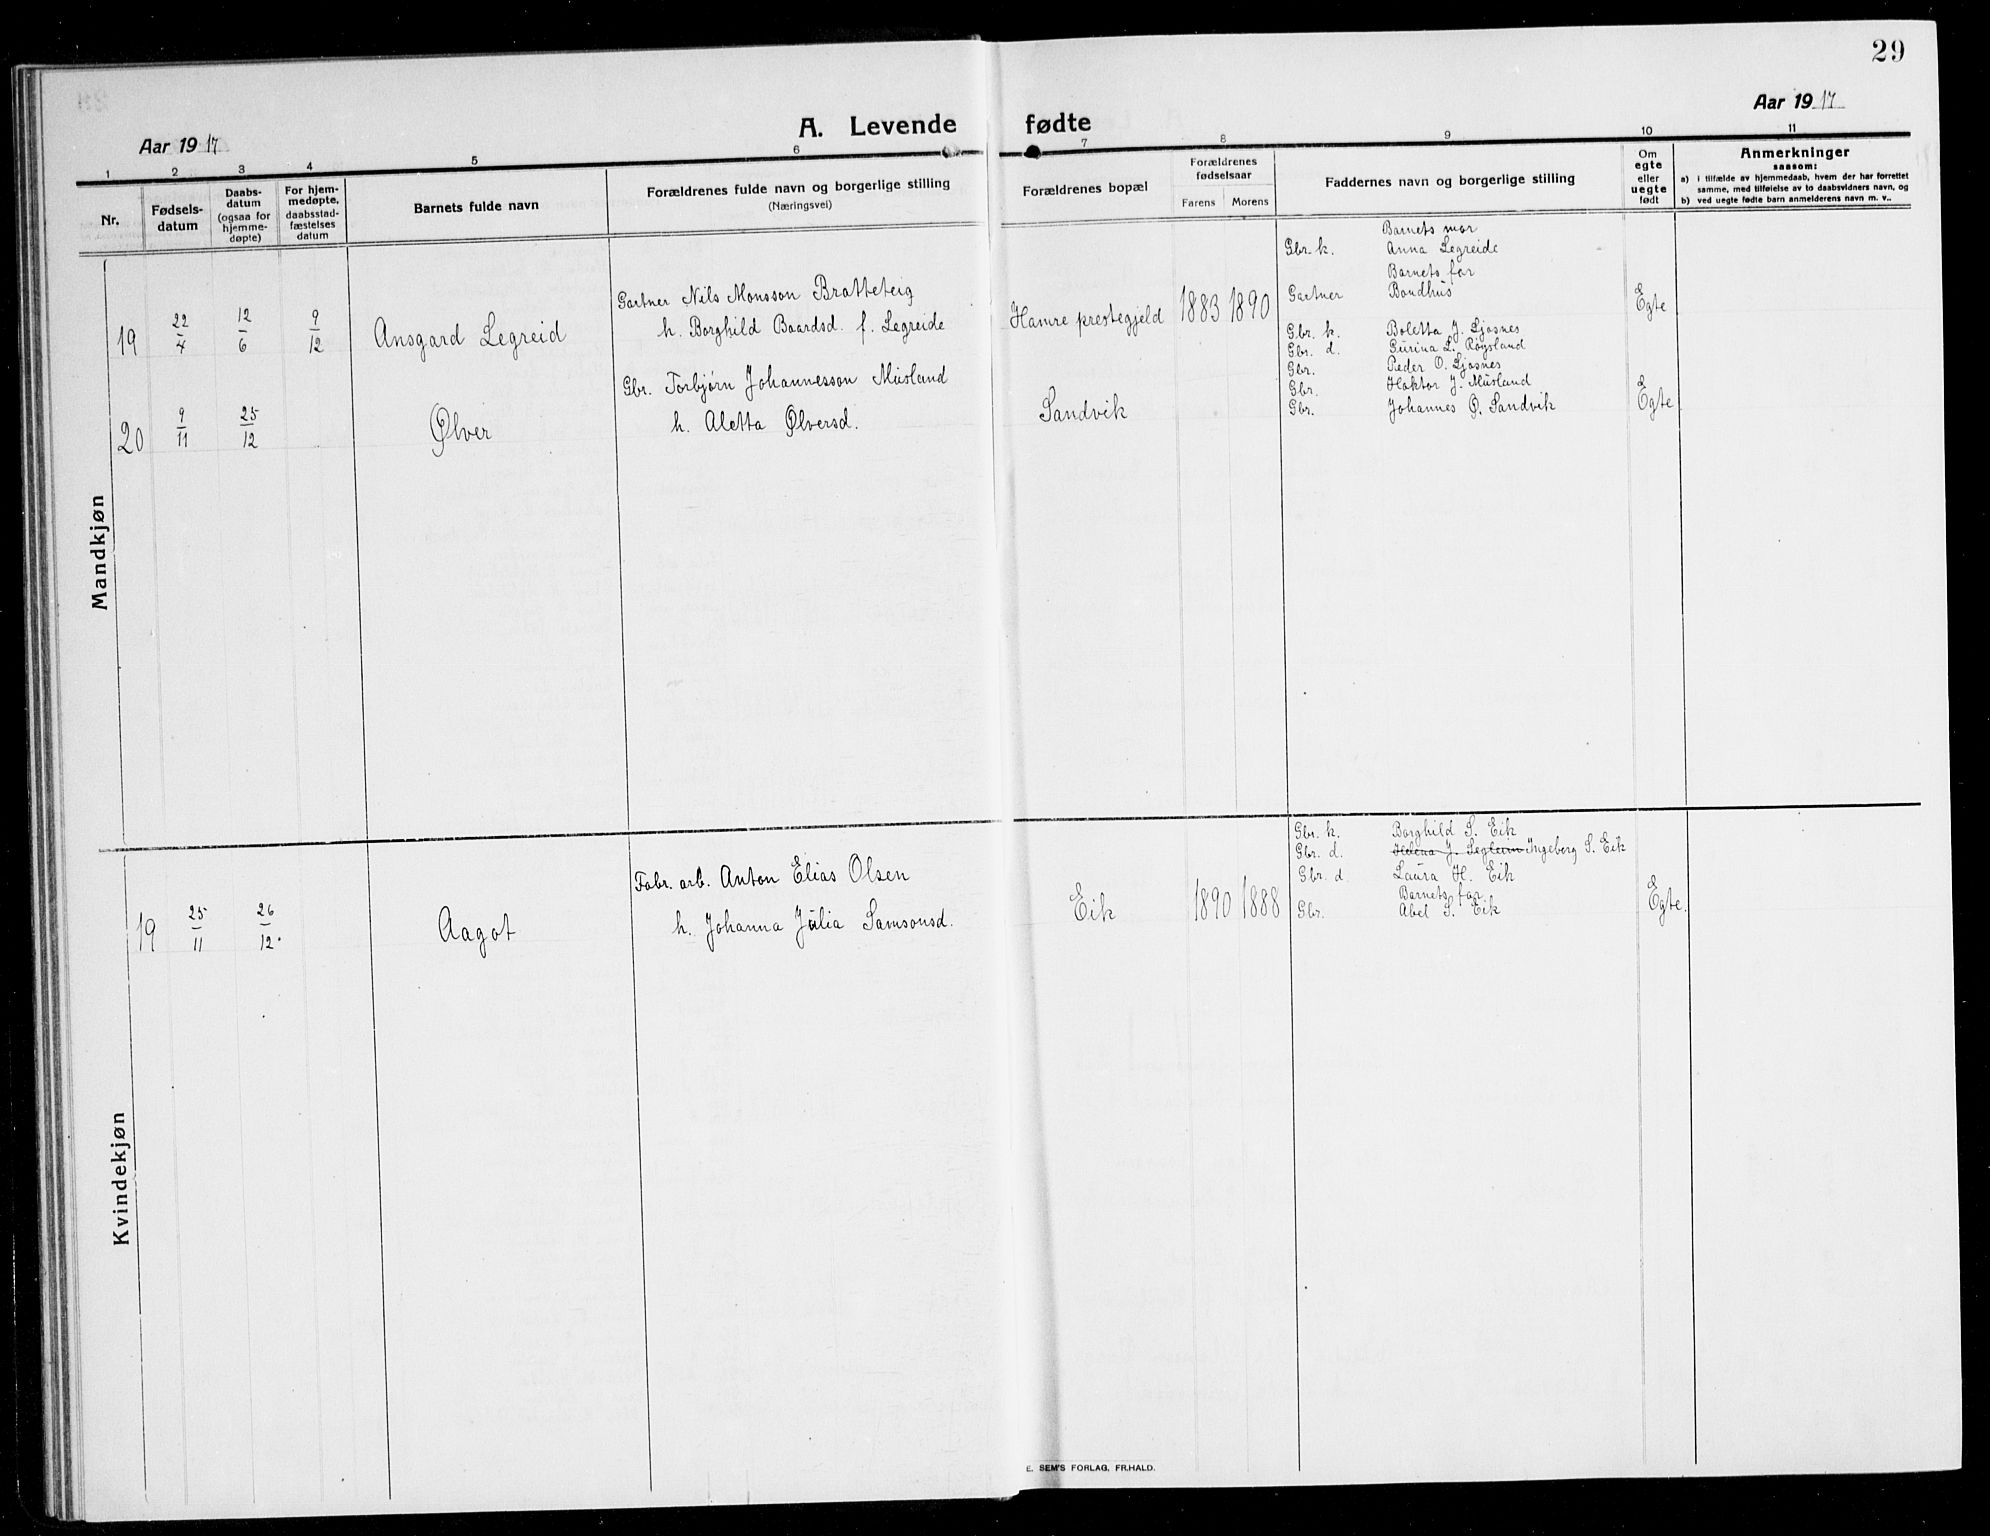 29
Aar 1917
A. Levende fødte
Aar 1917
1 2 3 4 5 6 7 8 9 10 11
Nr.
Fødsels-
datum
Daabs-
datum
(ogsaa for
hjemme-
døpte)
For hjem-
medøpte,
daabsstad-
fæstelses
datum
Barnets fulde navn
Forældrenes fulde navn og borgerlige stilling
(Næringsvei)
Forældrenes bopæl
Forældrenes
fødselsaar
Farens Morens
Faddernes navn og borgerlige stilling
Om
egte
eller
uegte
født
Anmerkninger
saasom:
a) i tilfælde av hjemmedaab, hvem der har forrettet
samme, med tilføielse av to daabsvidners navn, og
b) ved uegte fødte barn anmelderens navn m. v..
Mandkjøn
19 22/4 12/6 9/12 Ansgard Legreid
Gartner Nils Monsson Bratteteig
h. Borghild Baardsd. f. Legreide
Hamre prestegjeld 1883 1890
Barnets mor
Gbr. k. Anna Legreide
Barnets far
Gartner Bondhus
Egte
20 9/11 25/12 Ølver
Gbr. Torbjørn Johannesson Musland
h. Aletta Ølversd.
Sandvik
Gbr. k. Boletta J. Ljosnes
Gbr. d. Gurina L. Røysland
Gbr. Peder O. Ljosnes
Gbr. Haktor J. Musland
Gbr. Johannes Ø. Sandvik
Egte
Kvindekjøn
19 25/11 26/12. Aagot
Fabr. arb. Anton Elias Olsen
h. Johanna Julia Samsonsd.
Eik 1890 1888
Gbr. k. Borghild S. Eik
Gbr. d. Helena J. Ingeborg S. Eik
Gbr. d Laura H. Eik
Barnets far
Gbr. Abel S. Eik
Egte.
E. SEM'S FORLAG, FR.HALD.